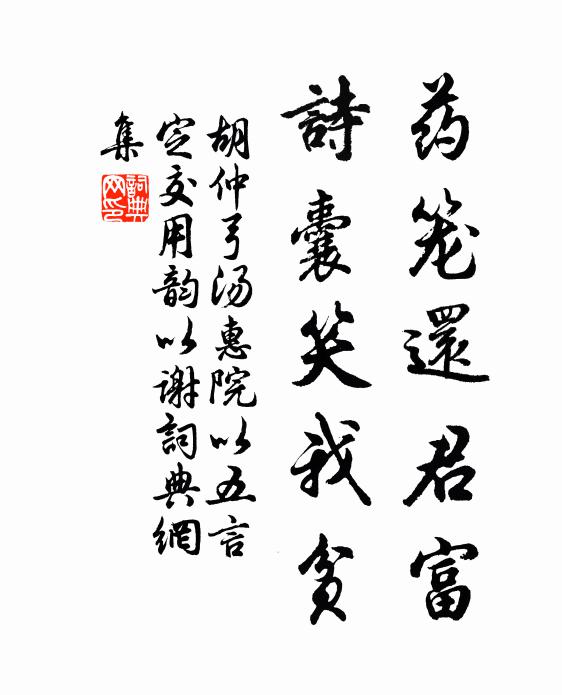 药笼還君富
詩囊笑我贫
胡仲弓汤惠院以五言
定交用韵以谢詞典網
集
詞典
网印